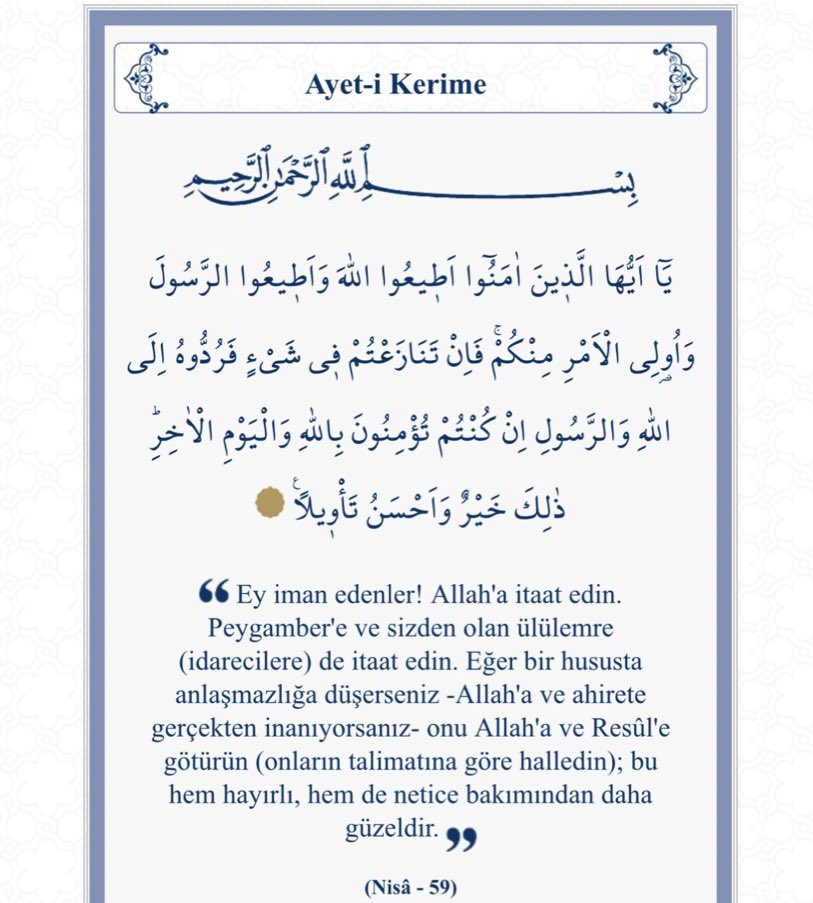 Ayet-i Kerime
بِسْمِ اللَّهِ الرَّحْمَٰنِ الرَّحِيمِ
يَٓا اَيُّهَا الَّذ۪ينَ اٰمَنُٓوا اَط۪يعُوا اللّٰهَ وَاَط۪يعُوا الرَّسُولَ
وَاُو۬لِي الْاَمْرِ مِنْكُمْۚ فَاِنْ تَنَازَعْتُمْ ف۪ي شَيْءٍ فَرُدُّوهُ اِلَى
اللّٰهِ وَالرَّسُولِ اِنْ كُنْتُمْ تُؤْمِنُونَ بِاللّٰهِ وَالْيَوْمِ الْاٰخِرِۜ
ذٰلِكَ خَيْرٌ وَاَحْسَنُ تَأْو۪يلًا۟
“ Ey iman edenler! Allah'a itaat edin.
Peygamber'e ve sizden olan ülülemre
(idarecilere) de itaat edin. Eğer bir hususta
anlaşmazlığa düşerseniz -Allah'a ve ahirete
gerçekten inanıyorsanız- onu Allah'a ve Resûl'e
götürün (onların talimatına göre halledin); bu
hem hayırlı, hem de netice bakımından daha
güzeldir. ”
(Nisâ - 59)